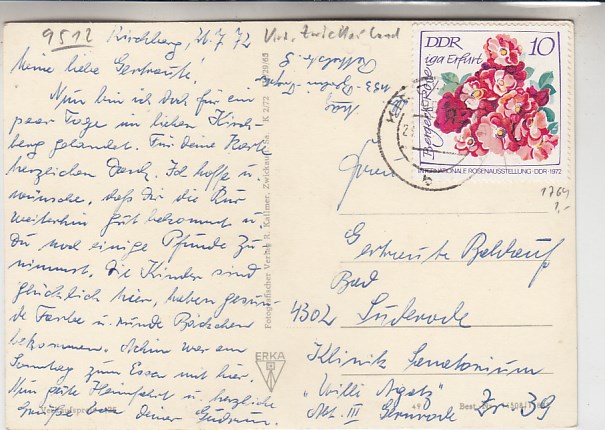 9512
Kirchberg, 26.7.72
Kr. Zwickau Land
Meine liebe Gertraute!
Nun bin ich doch für ein
paar Tage im lieben Kirch-
berg gelandet. Für Deine Karte
herzlichen Dank. Ich hoffe u.
wünsche, daß dir die Kur
weiterhin gut bekommt u.
du noch einige Pfunde zu-
nimmst. Die Kinder sind
glücklich hier, haben gesun-
de Farbe u. runde Bäckchen
bekommen. Achim war am
Sonntag zum Essen mit hier.
Nun gute Heimfahrt u. herzliche
Grüße von deiner Gudrun.
Fotografischer Verlag R. Kallmer, Zwickau Sa. K 2/72
ERKA
DDR 10
iga Erfurt
Bergers Rose
INTERNATIONALE ROSENAUSSTELLUNG · DDR · 1972
b
1764
1,-
Frau
Gertraute
Bad
4302 Suderode
Klinik Sanatorium
"Willi Agatz"
Abt. III Gernrode Zi 39
49